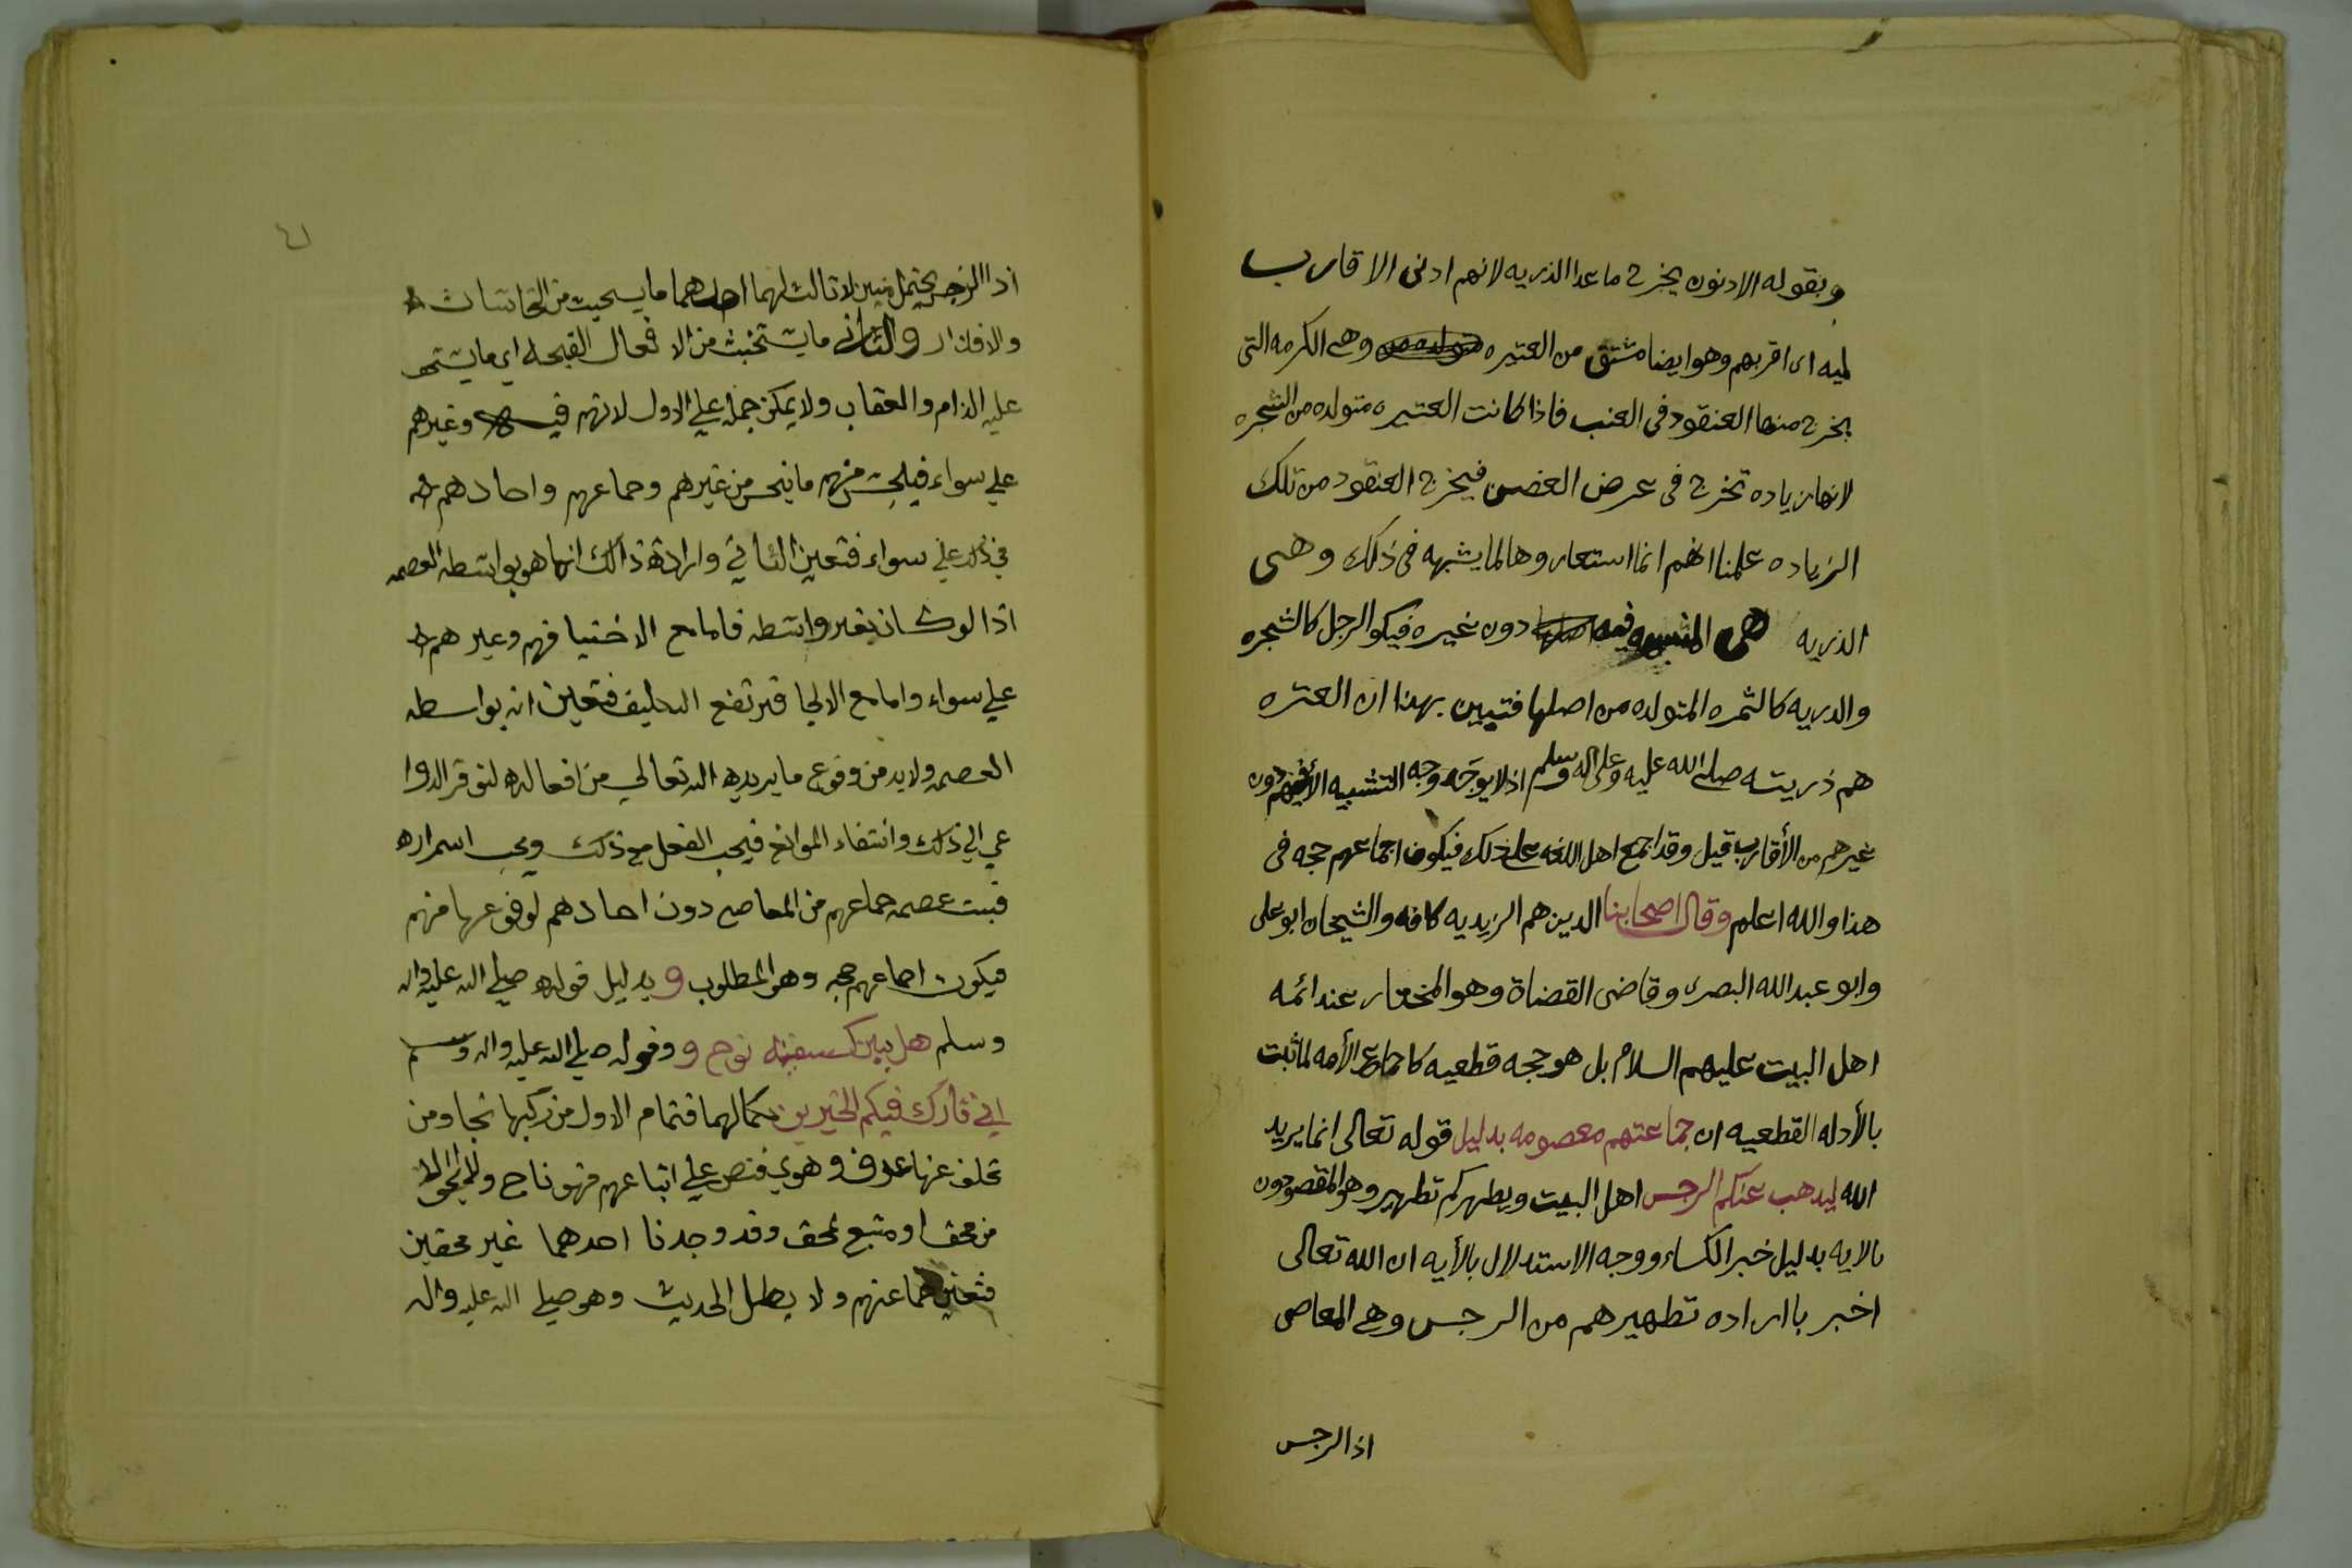 وبقوله الادنون يخرج ماعدا الذريه لانهم ادنى الاقارب
ليه اى اقربهم وهو ايضا مشتق من العتيره وهى الكرمه التى
يخرج منها العنقود فى العنب فاذا كانت العتيره متولده من الشجره
لانها زياده تخرج فى عرض الغصن فيخرج العنقود من تلك
الزياده علمنا انهم انما استعاروها لما يشبهه فى ذلك وهى
الذريه هى دون غيره فيكو الرجل كالشجره
والدريه كالثمره المتولده من اصلها فتبين بهذا ان العتره
هم ذريته صلى الله عليه وعلى اله وسلم اذ لا يوجد وجه التشبيه الا فيهم دون
غيرهم من الأقارب قيل وقد اجمع اهل اللغه على ذلك فيكون اجماعهم حجه فى
هذا والله اعلم وقال اصحابنا الدين هم الزيديه كافه والشيخان ابو على
وابو عبد الله البصرى وقاضى القضاة وهو المختار عند ائمه
اهل البيت عليهم السلام بل هو حجه قطعيه كاجماع الأمه لما ثبت
بالأدله القطعيه ان جماعتهم معصومه بدليل قوله تعالى انما يريد
الله ليدهب عنكم الرجس اهل البيت ويطهركم تطهير وهو المقصودون
بالايه بدليل خبر الكساء ووجه الاستدلال بالأيه ان الله تعالى
اخبر باارادة تطهيرهم من الرجس وهى المعاصى
اذا الرجس
اذا الرجس يحتمل لا ثالث لهما احدهما ما يستخبث من النجاسات
والاقذار والثانى ما يستخبث من الافعال القبيحه اي ما يستحق
عليه الذام والعقاب ولا يمكن حمله علي الاول لانهم فيه وغيرهم
علي سواء فينجس منهم ما ينجس من غيرهم وجماعهم واحادهم
في ذلك علي سواء فتعين الثاني وارادة ذالك انما هو بواسطه العصمه
اذا لو كان بغير واسطه فامامع الاختيا فهم وغيرهم
علي سواء وامامع الالجا فيرتفع التكليف فتعين انه بواسطه
العصمه ولابد من وقوع ما يريده الله تعالي من افعاله لتوفر الدوا
عي الي ذلك وانتفاء الموانع فيجب الفعل مع ذلك ويجب اسمراره
فبت عصمه جماعهم من المعاصي دون احادهم لوقوعها منهم
فيكون اجماعهم حجه وهو المطلوب وبدليل قوله صلي الله عليه واله
وسلم هل بيتي كسفينه نوح و وقوله صلي الله عليه واله وسلم
اني تارك فيكم الخبرين بكمالهما فتمام الاول من ركبها نجا ومن
تخلف عنها غرق وهوي فنص علي اتباعهم فهو ناج
من محق او متبع لمحق وقد وجدنا احدهما غير محقين
فتعين جماعتهم ولا يبطل الحديث وهو صلي الله عليه واله